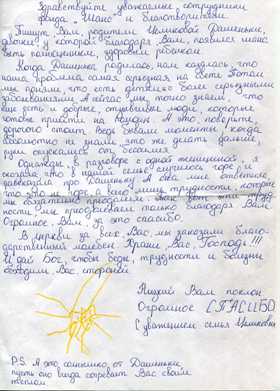 Здравствуйте уважаемые сотрудники
фонда "Шанс" и благотворители.
Пишут Вам, родители Цымковой Дашеньки,
девочки у которой благодаря Вам, появился шанс
быть полноценным, здоровым ребенком.
Когда Дашенька родилась, нам казалось что
наша проблема самая серьезная на свете. Потом
мы поняли, что есть детишки с более серьезными
проблемами. А сейчас мы, точно знаем что
еще есть и добрые, отзывчивые люди, которые
готовы прийти на помощь. А это, поверьте,
дорогого стоит. Ведь бывали моменты, когда
абсолютно не знали, что же делать дальше,
руки опускались от бессилия.
Однажды, в разговоре с одной женщиной, я
сказала, что в нашей семье случилось горе, и
рассказала про Дашеньку. А она мне ответила,
что это не горе, а всего лишь трудности, которые
мы обязательно преодолеем. Так вот эти труд-
ности, мы преодолеваем только благодаря Вам.
Огромное, Вам, за это спасибо.
В церкви за всех Вас, мы заказали благо-
дарственный молебен. Храни, Вас, Господь!!!
И дай Бог, чтобы беды, трудности и болезни
обходили, Вас, стороной.
Низкий Вам поклон
Огромное СПАСИБО
С уважением семья Цымковых
P.S. А это, солнышко, от Дашеньки,
пусть оно всегда согревает Вас своим
теплом